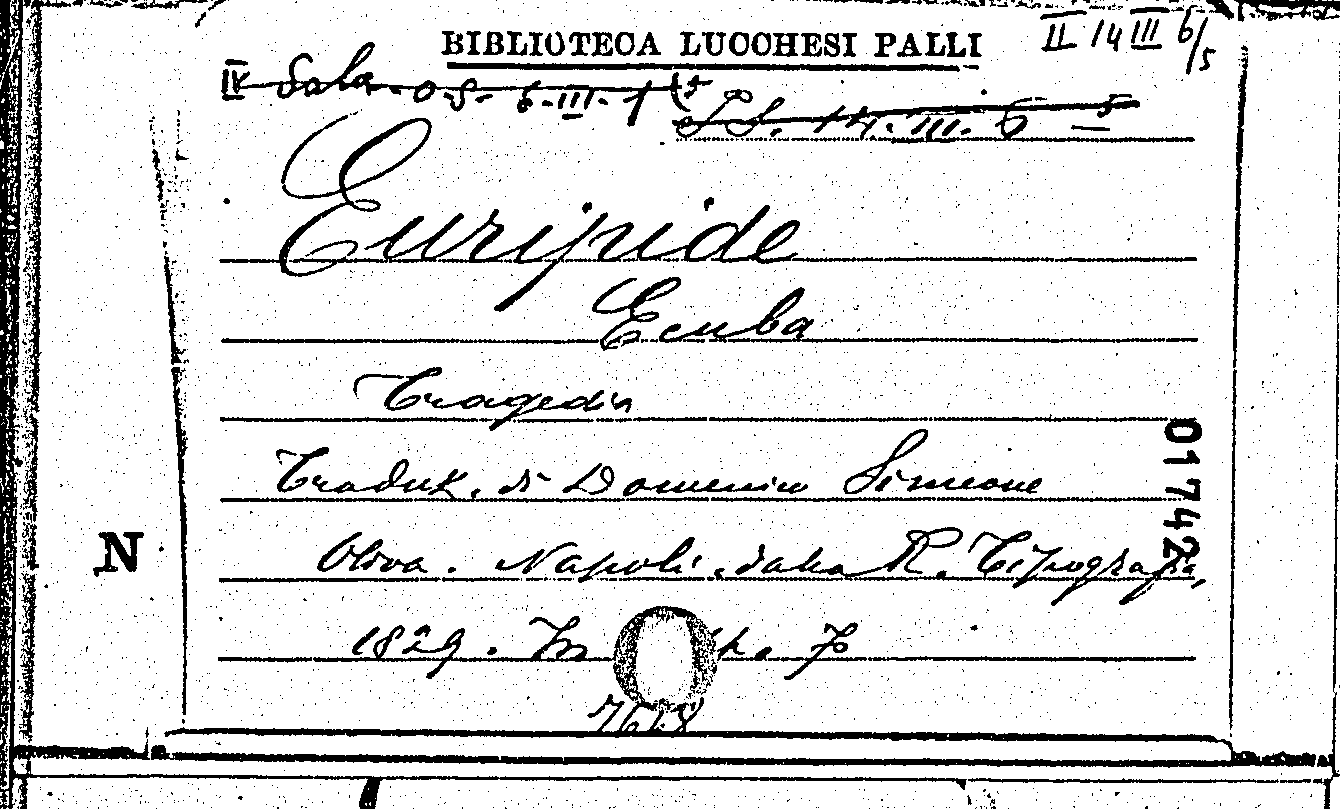 BIBLIOTECA LUCCHESI PALLI
II 14 III 6/5
IV Sala
14. III. 6 5
Euripide
Ecuba
Tragedia
Traduz. di Domenico Simeone
Oliva. Napoli, dalla R. Tipografia,
1829. In
01742
N